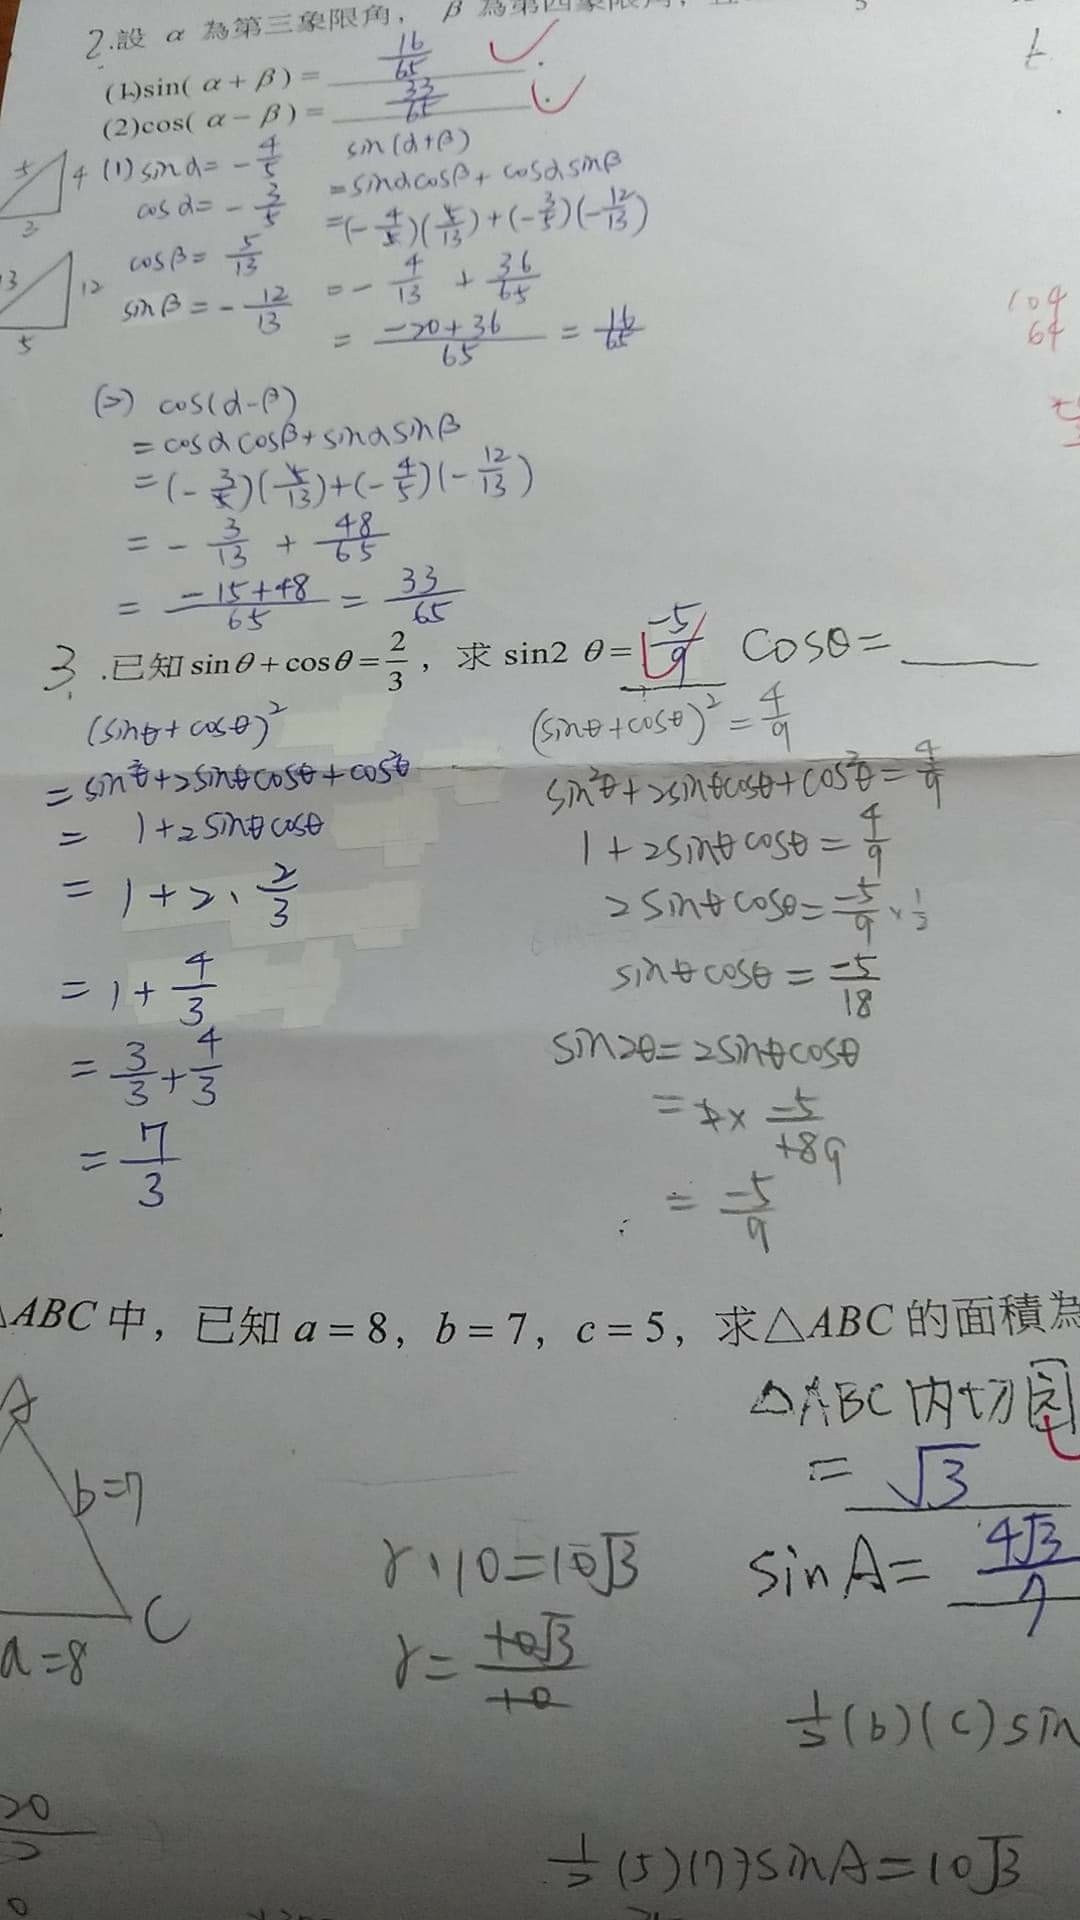 2.設 α 為第三象限角, β 為第四象限角,
(1)sin( α + β ) = 16/65 .
(2)cos( α − β ) = 33/65 .
5 4 3
(1) sinα = -4/5
cosα = -3/5
13 12 5
cosβ = 5/13
sinβ = -12/13
sin(α+β)
= sinαcosβ + cosαsinβ
= (-4/5)(5/13) + (-3/5)(-12/13)
= -4/13 + 36/65
= -20+36/65 = 16/65
(2) cos(α-β)
= cosαcosβ + sinαsinβ
= (-3/5)(5/13) + (-4/5)(-12/13)
= -3/13 + 48/65
= -15+48/65 = 33/65
3. .已知 sinθ + cosθ = 2/3 , 求 sin2 θ = -5/9 cosθ = ____
(sinθ + cosθ)²
= sin²θ + 2sinθcosθ + cos²θ
= 1 + 2sinθcosθ
= 1 + 2 · 2/3
= 1 + 4/3
= 3/3 + 4/3
= 7/3
(sinθ + cosθ)² = 4/9
sin²θ + 2sinθcosθ + cos²θ = 4/9
1 + 2sinθcosθ = 4/9
2sinθcosθ = -5/9 × 1/2
sinθcosθ = -5/18
sin2θ = 2sinθcosθ
= 2 × -5/18 9
= -5/9
△ABC 中, 已知 a = 8, b = 7, c = 5, 求△ABC 的面積為
A
b=7
C
a=8
△ABC 內切圓
= √3
sin A = 4√3/7
r · 10 = 10√3
r = 10√3/10
1/2 (b)(c) sin
20/2
1/2 (5)(7) sin A = 10√3
104
64